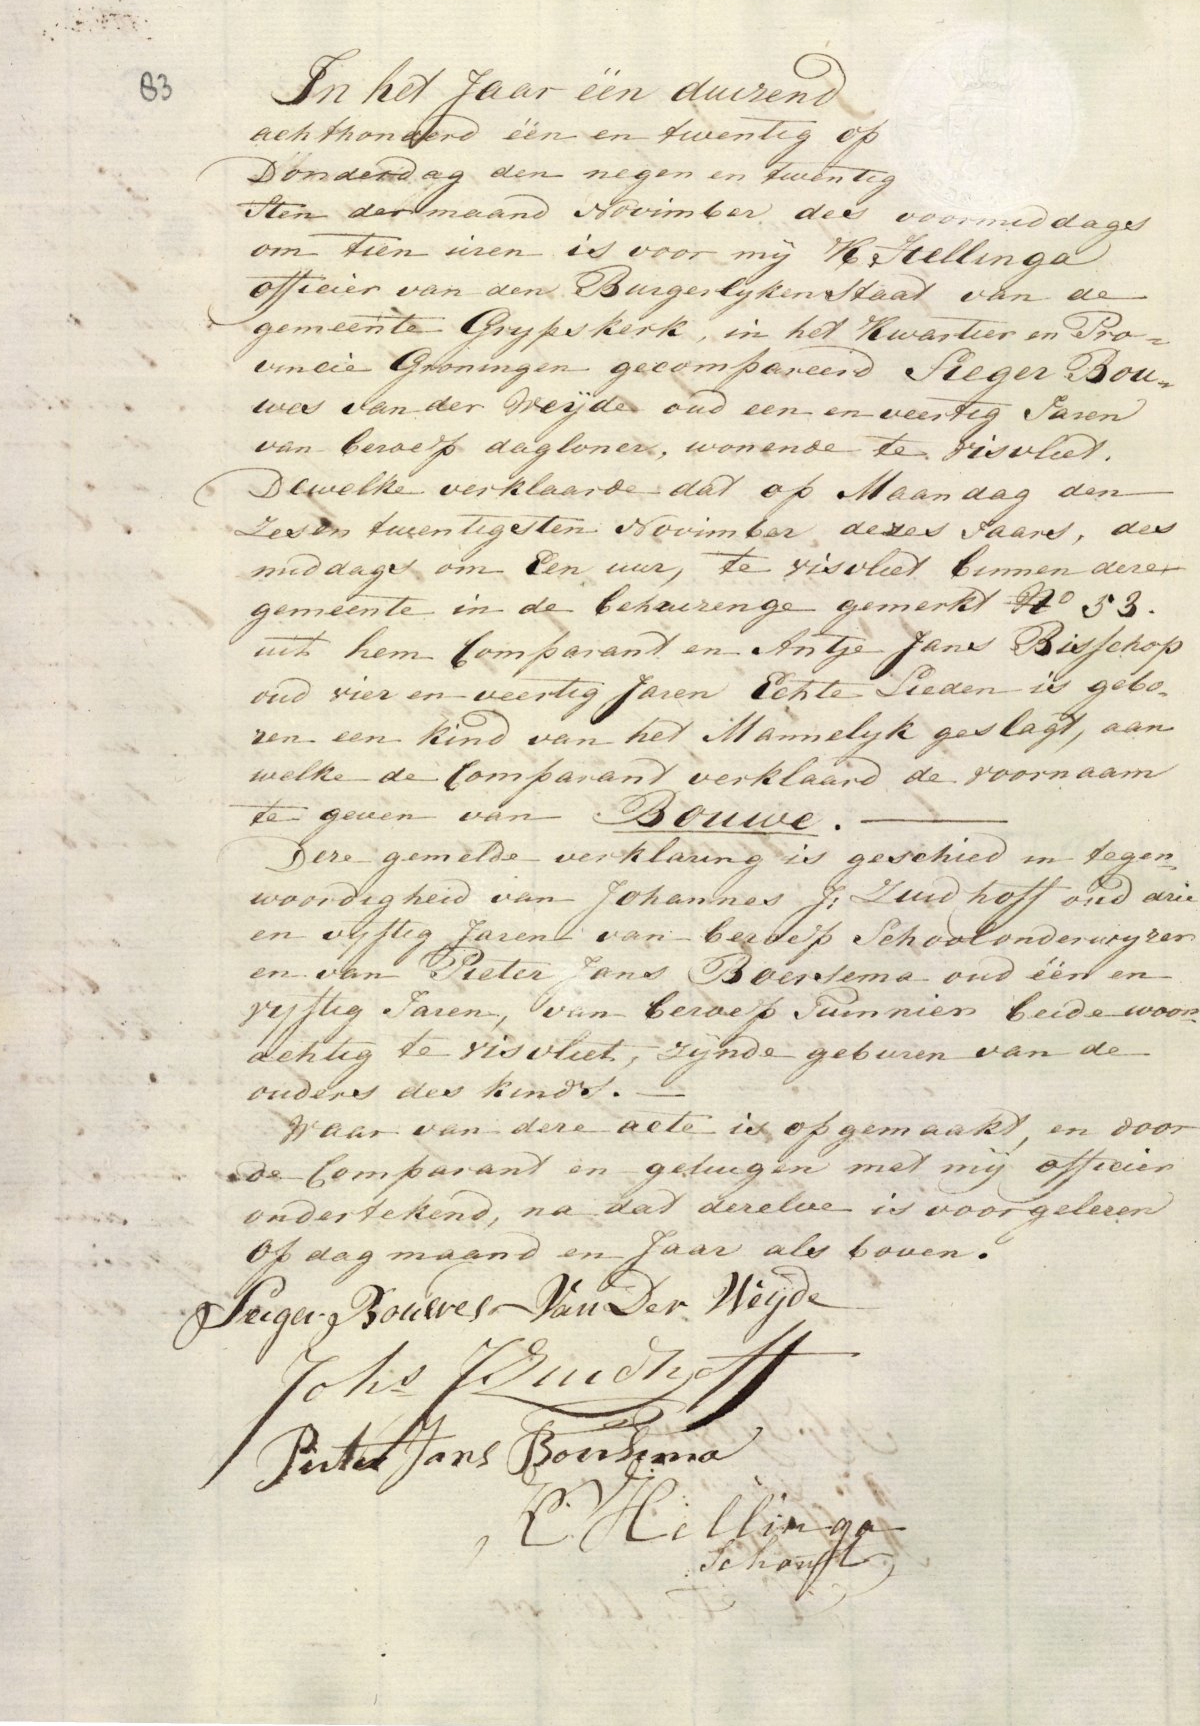 83
In het Jaar één duizend
achthonderd één en twentig op
Donderdag den negen en twentig
sten der maand Novimber des voormiddages
om tien uren is voor mÿ K Hellinga
officier van den Burgerlyken Staat van de
gemeente Grypskerk, in het Kwartier en Pro=
vincie Groningen gecompareerd Sieger Bou=
wes van der Weÿde oud een en veertig Jaren
van beroep dagloner, wonende te visvliet.
Dewelke verklaarde dat op Maandag den
zes en twentigsten Novimber dezes Jaars, des
middags om Een uur, te visvliet binnen deze
gemeente in de behuizenge gemerkt No 53.
uit hem Comparant en Antje Jans Bisschop
oud vier en veertig Jaren Echte Lieden is gebo=
ren een kind van het Mannelyk geslagt, aan
welke de Comparant verklaard de voornaam
te geven van Bouwe.
Deze gemelde verklaring is geschied in tegen=
woordigheid van Johannes J: Zuidhoff oud drie
en vyftig Jaren van beroep Schoolonderwyzer
en van Pieter Jans Boersema oud één en
vyftig Jaren, van beroep Tuinnier beide woon=
achtig te visvliet, zÿnde geburen van de
ouders des kinds.
Waar van deze acte is opgemaakt, en door
de Comparant en getuigen met mÿ officier
ondertekend, na dat dezelve is voorgelezen
Op dag maand en Jaar als boven.
Sieger Bouwes Van Der Weÿde
Johs J Zuidhoff
Pieter Jans Boersema
K Hellinga
Schout